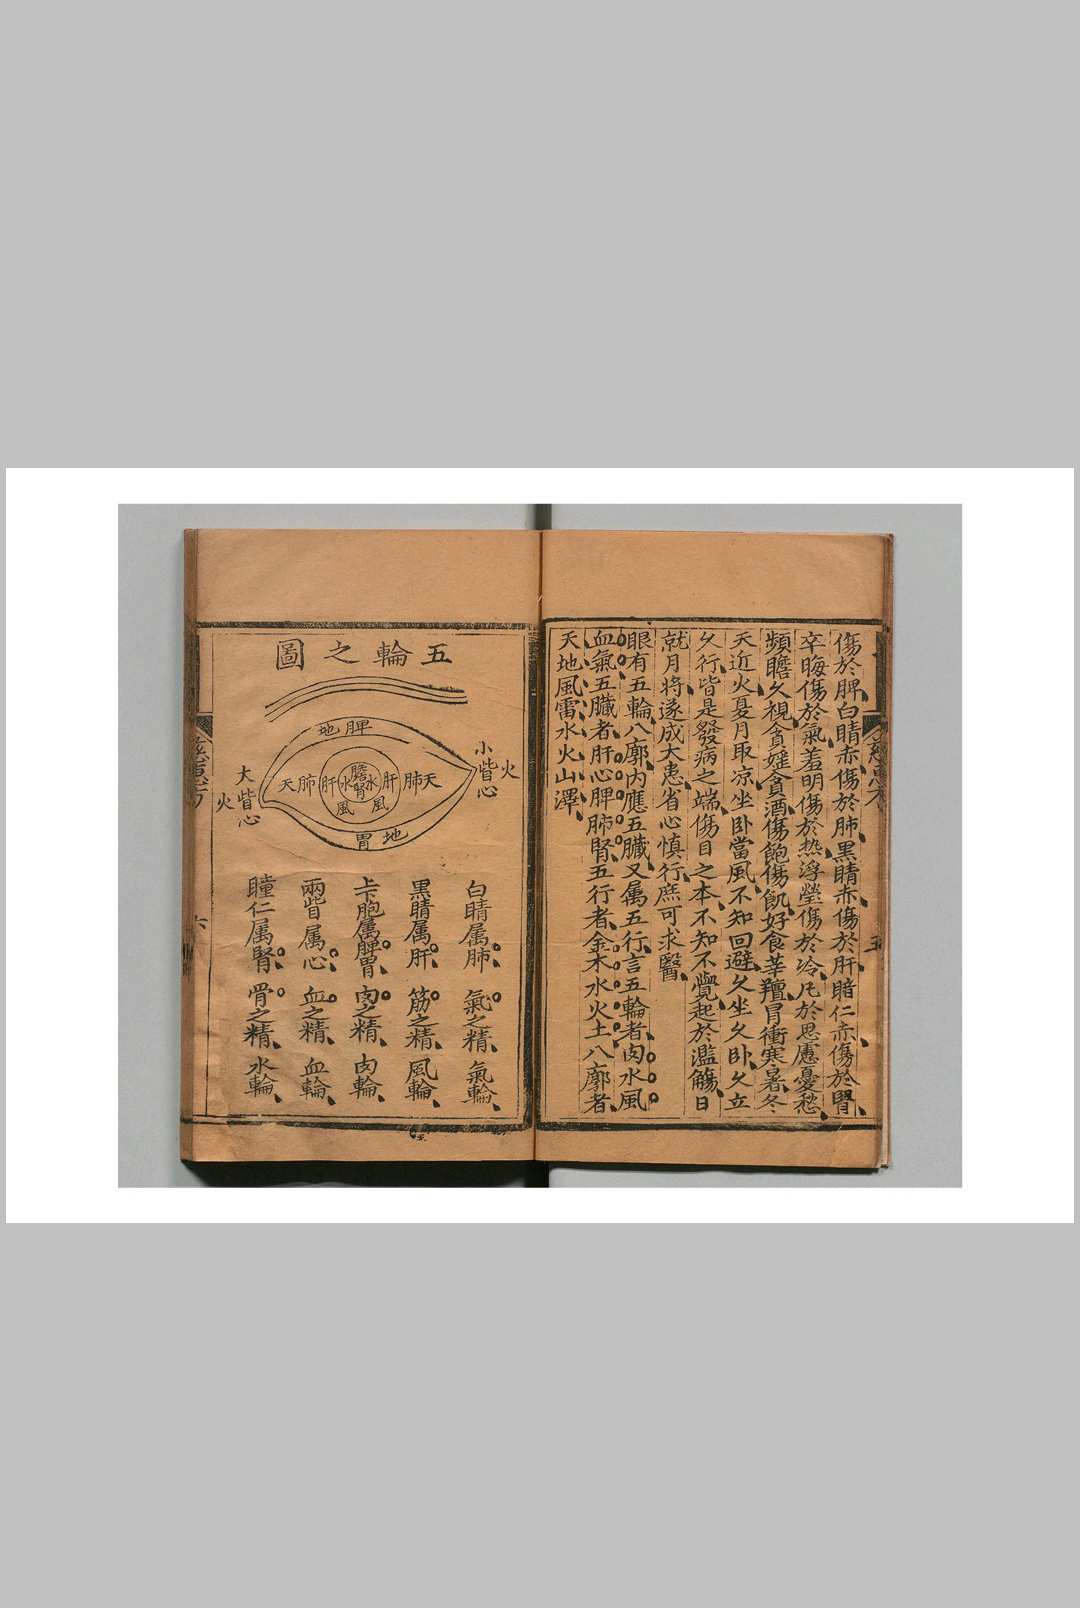 傷於脾白睛赤傷於肺黑睛赤傷於肝瞳仁赤傷於腎
卒晦傷於氣羞明傷於熱浮瑩傷於冷凡於思慮憂愁
頻瞻久視貪婬貪酒傷飽傷飢好食葷羶冒衝寒暑冬
天近火夏月取凉坐卧當風不知回避久坐久卧久立
久行皆是發病之端傷目之本不知不覺起於濫觴日
就月將遂成大患省心慎行庶可求醫
眼有五輪八廓內應五臟又属五行言五輪者肉水風
血氣五臟者肝心脾肺腎五行者金木水火土八廓者
天地風雷水火山澤
五輪之圖
脾地
小眥心火
天肺肝水膽腎水肝肺天
風風
大眥心火
地胃
白睛属肺氣之精氣輪
黑睛属肝筋之精風輪
上胞属脾胃肉之精肉輪
兩眥属心血之精血輪
瞳仁属腎骨之精水輪
六